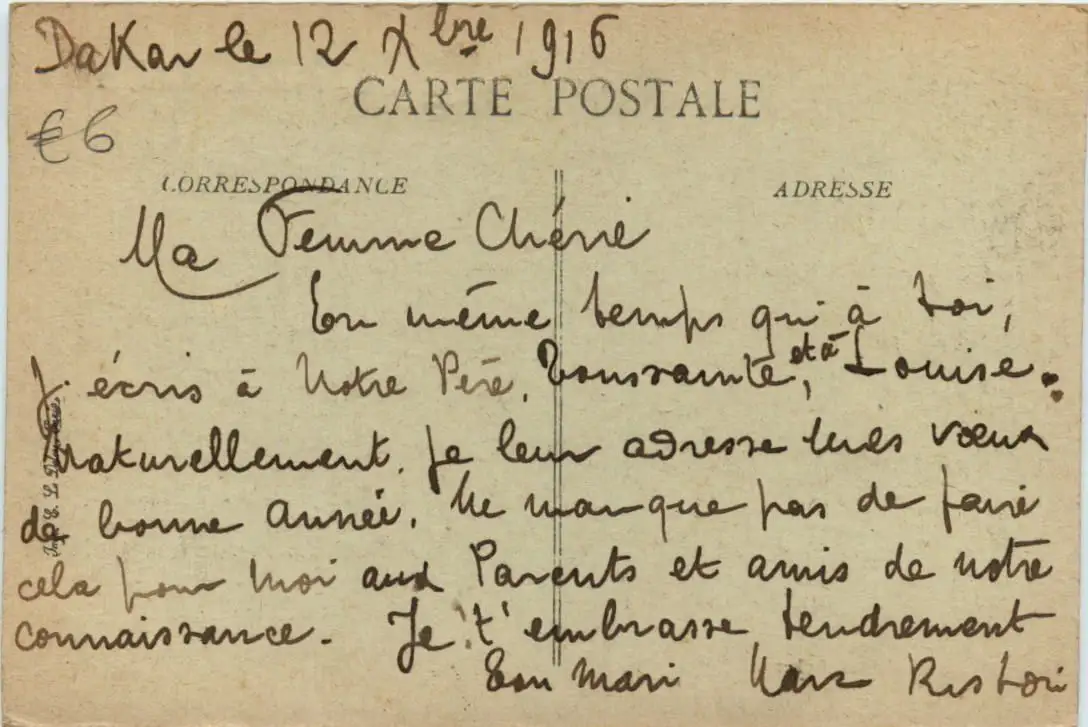 Dakar le 12 Xbre 1916
CARTE POSTALE
€6
CORRESPONDANCE
ADRESSE
Ma Femme Chérie
En même temps qu'à toi,
J'écris à Notre Père, Toussainte, et à Louise.
Naturellement. je leur adresse mes vœux
de bonne année. Ne manque pas de faire
cela pour moi aux Parents et amis de notre
connaissance. Je t'embrasse tendrement
Ton Mari Ristori